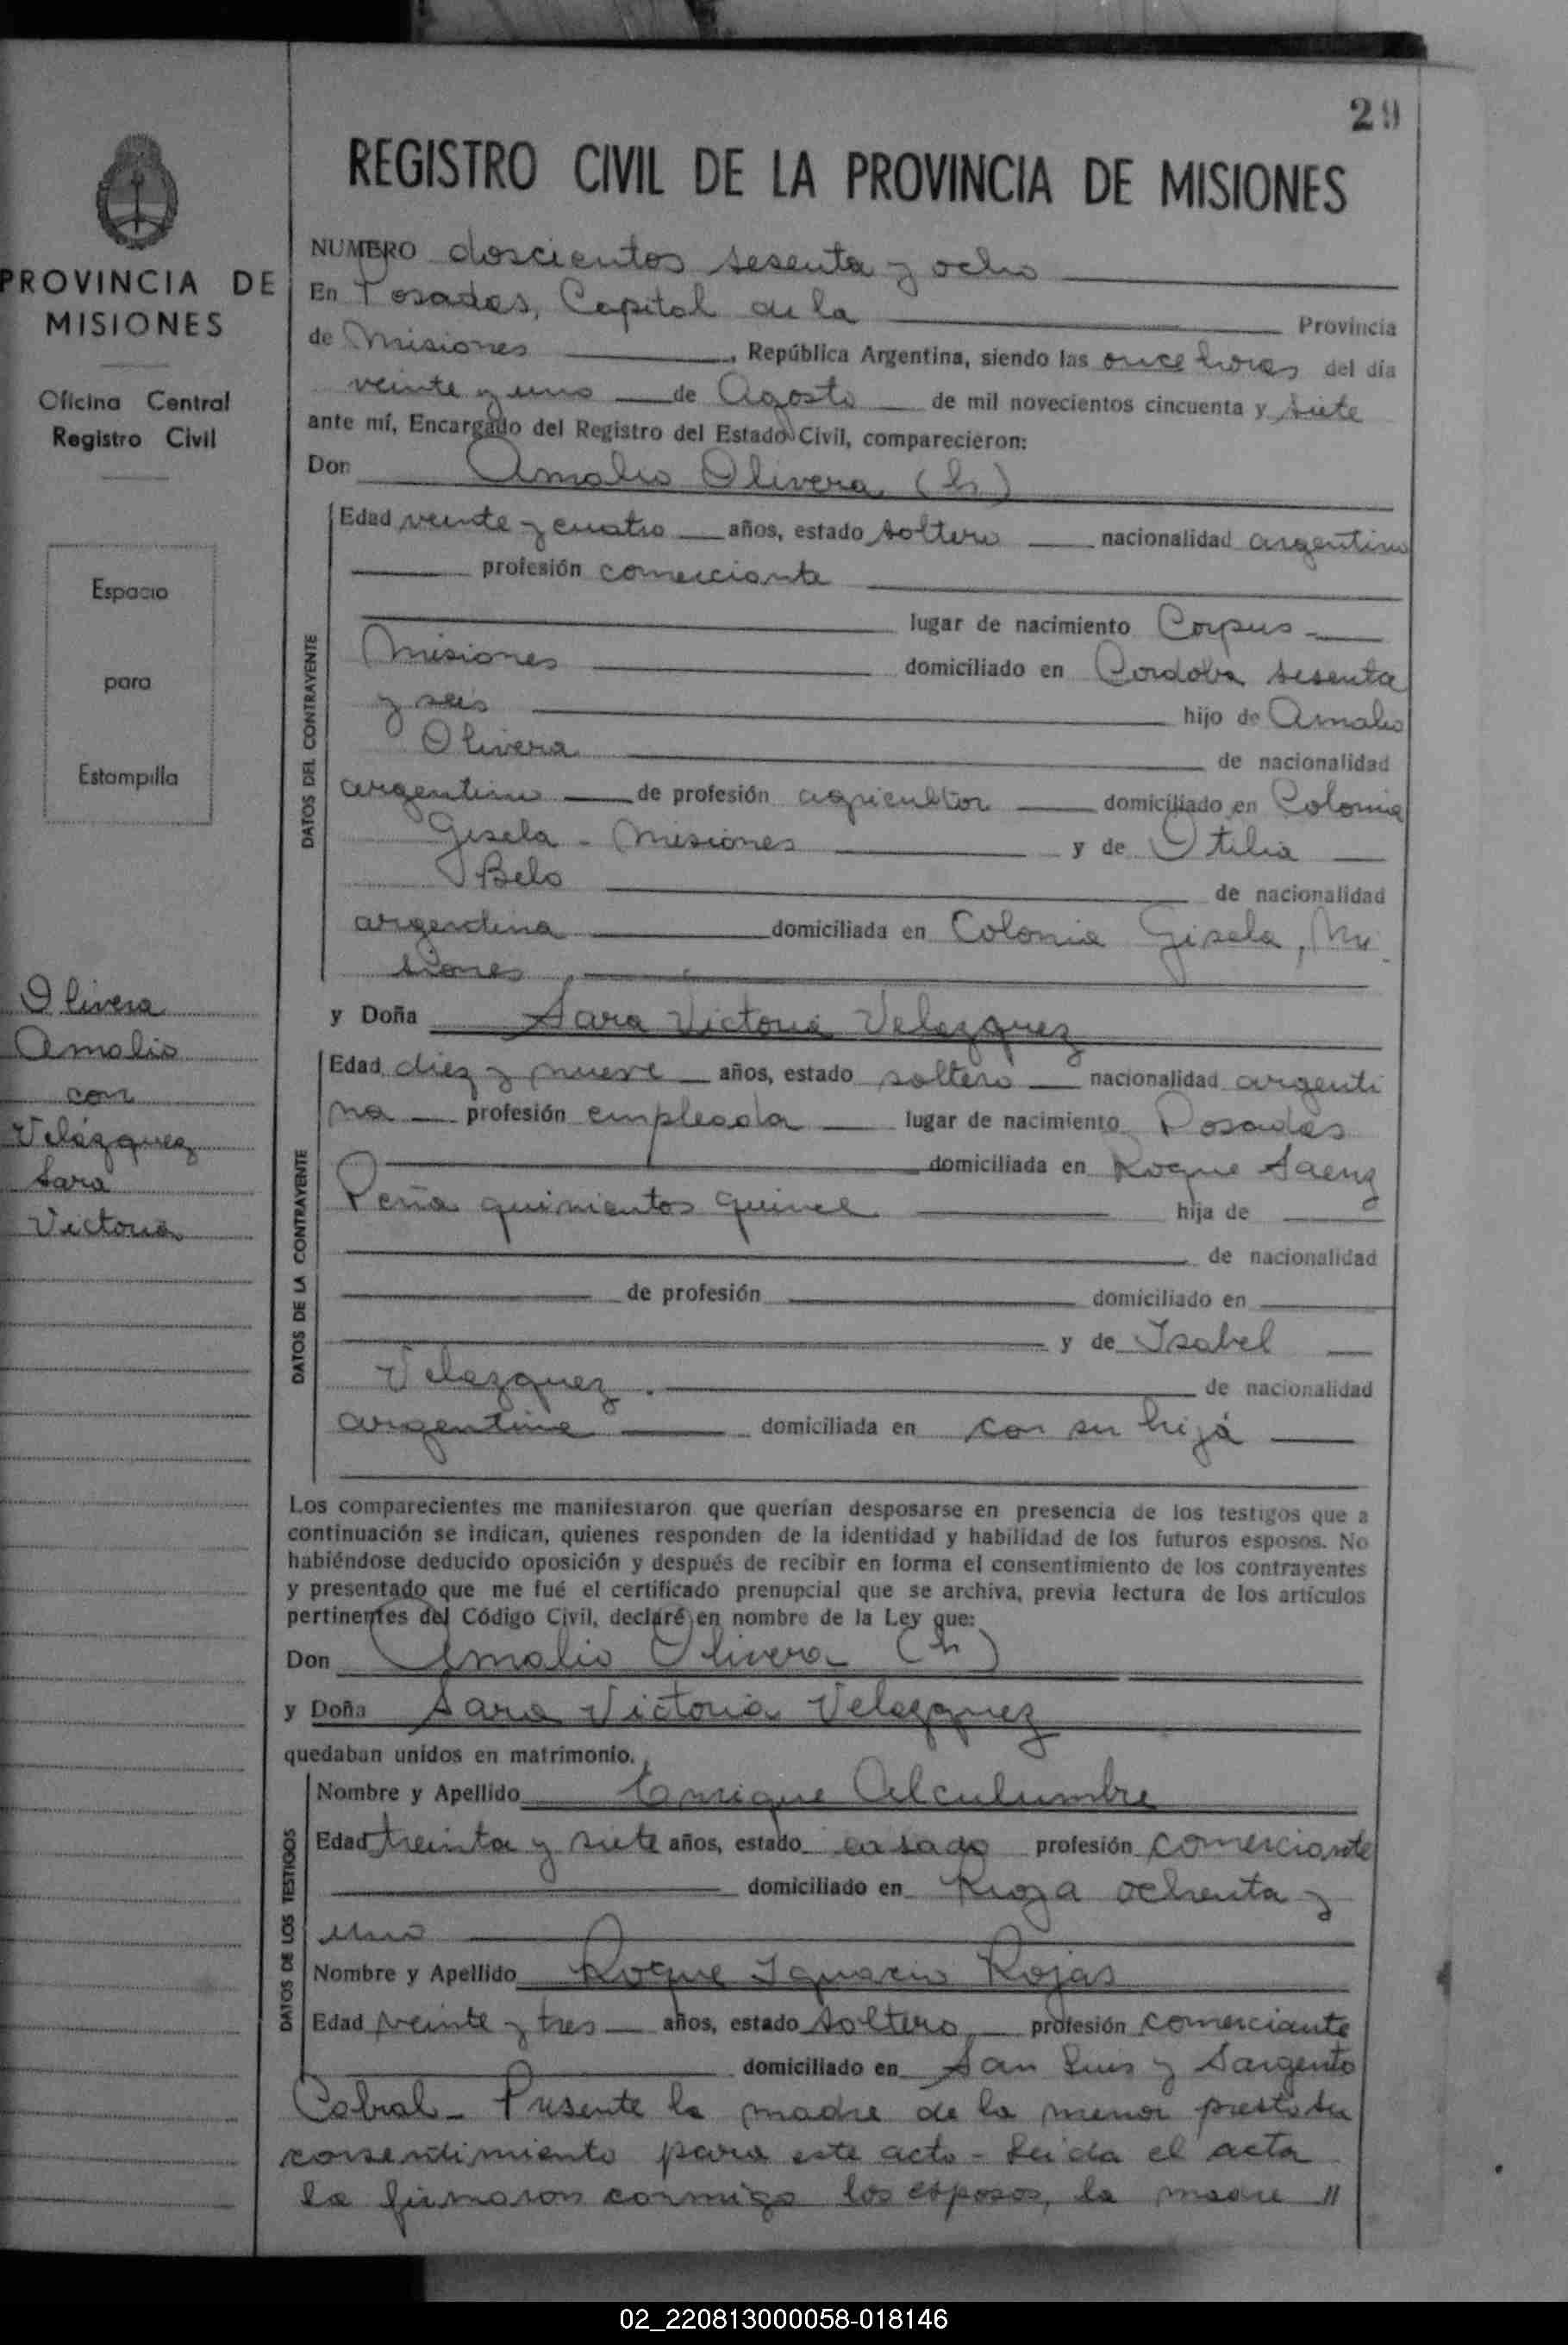 29
REGISTRO CIVIL DE LA PROVINCIA DE MISIONES
PROVINCIA DE
MISIONES
Oficina Central
Registro Civil
Espacio
para
Estampilla
Olivera
Amalio
con
Velázquez
Sara
Victoria
NUMERO doscientos sesenta y ocho
En Posadas, Capital de la Provincia
de Misiones, República Argentina, siendo las once horas del día
veinte y uno de Agosto de mil novecientos cincuenta y siete
ante mí, Encargado del Registro del Estado Civil, comparecieron:
Don Amalio Olivera (h)
DATOS DEL CONTRAYENTE
Edad veinte y cuatro años, estado soltero nacionalidad argentino
profesión comerciante
lugar de nacimiento Corpus -
Misiones domiciliado en Cordoba sesenta
y seis hijo de Amalio
Olivera de nacionalidad
argentino de profesión agricultor domiciliado en Colonia
Gisela - Misiones y de Otilia
Belo de nacionalidad
argentina domiciliada en Colonia Gisela, Mi-
siones
y Doña Sara Victoria Velazquez
DATOS DE LA CONTRAYENTE
Edad diez y nueve años, estado soltera nacionalidad argenti
na profesión empleada lugar de nacimiento Posadas
domiciliada en Roque Saenz
Peña quinientos quince hija de
de nacionalidad
de profesión domiciliado en
y de Isabel
Velazquez. de nacionalidad
argentina domiciliada en con su hija
Los comparecientes me manifestaron que querían desposarse en presencia de los testigos que a
continuación se indican, quienes responden de la identidad y habilidad de los futuros esposos. No
habiéndose deducido oposición y después de recibir en forma el consentimiento de los contrayentes
y presentado que me fué el certificado prenupcial que se archiva, previa lectura de los artículos
pertinentes del Código Civil, declaré en nombre de la Ley que:
Don Amalio Olivera (h)
y Doña Sara Victoria Velazquez
quedaban unidos en matrimonio.
DATOS DE LOS TESTIGOS
Nombre y Apellido Enrique Alculumbre
Edad treinta y siete años, estado casado profesión comerciante
domiciliado en Rioja ochenta y
uno
Nombre y Apellido Roque Ignacio Rojas
Edad veinte y tres años, estado soltero profesión comerciante
domiciliado en San Luis y Sargento
Cabral - Presente la madre de la menor presto su
consentimiento para este acto - Leida el acta
la firmaron conmigo los esposos, la madre //
02_220813000058-018146